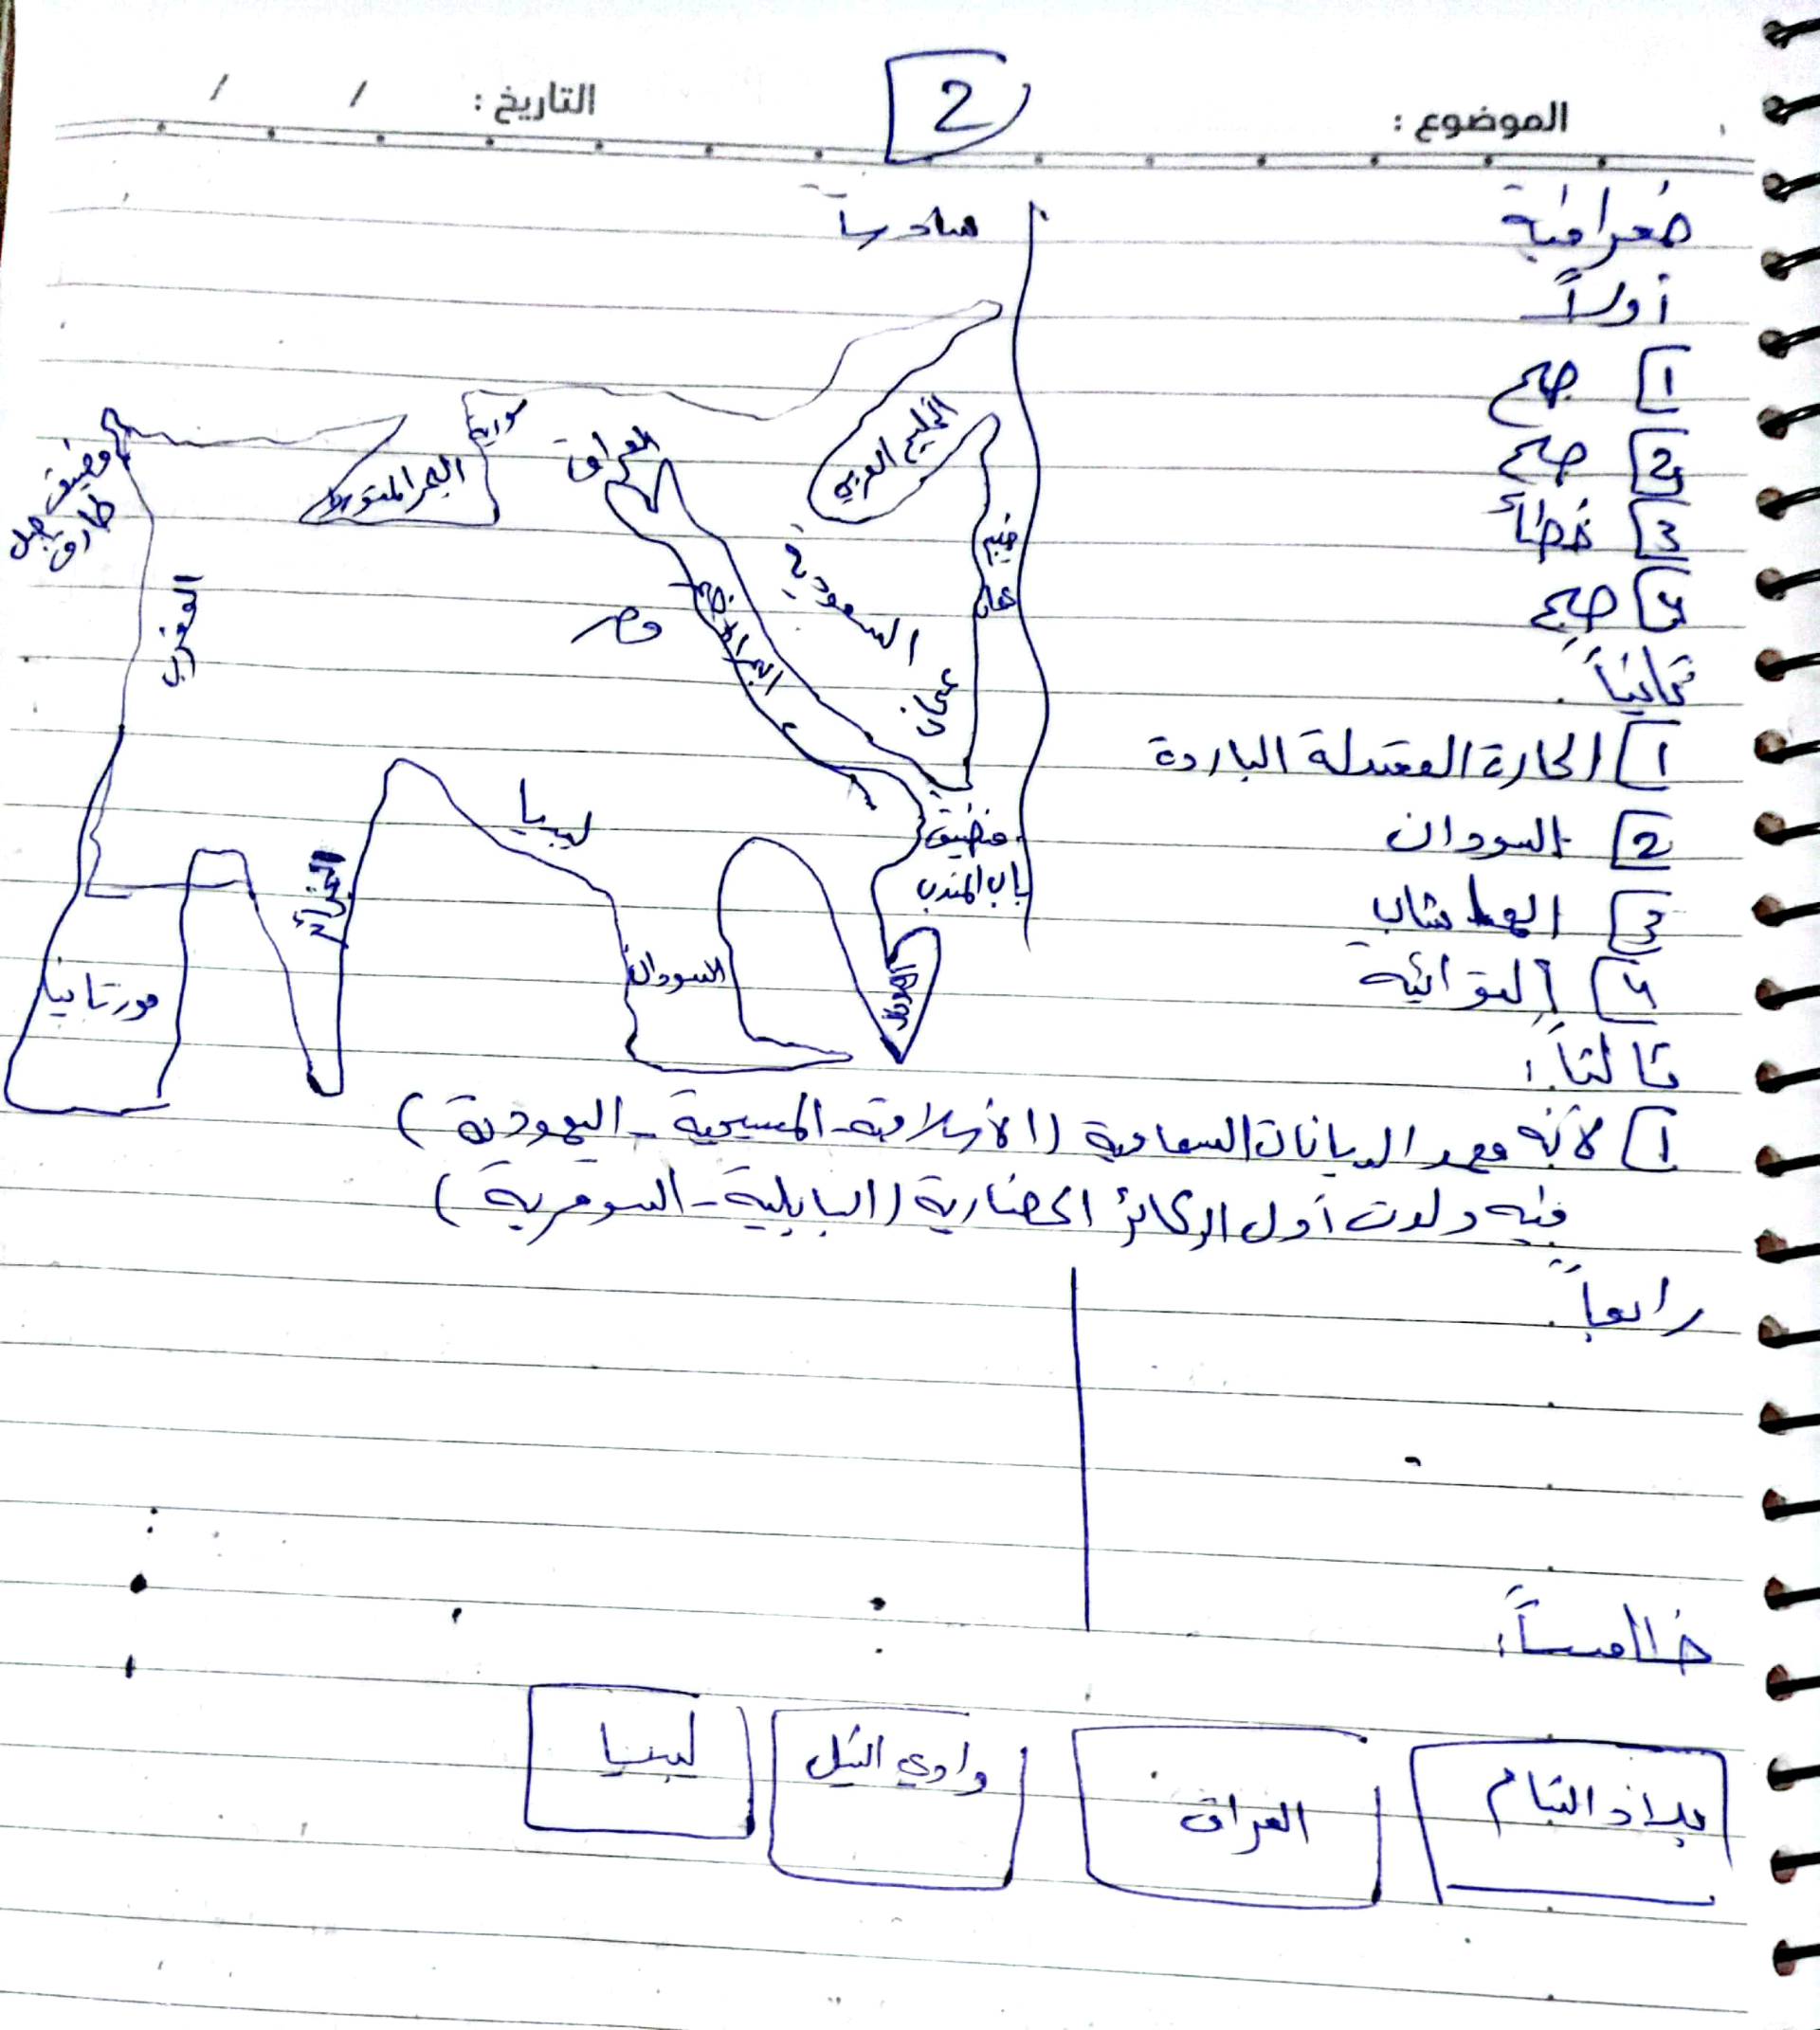 الموضوع :
2
التاريخ : / /
جغرافية
أولاً
1 صح
2 صح
3 خطأ
4 صح
ثانياً
1 الحارة المعتدلة الباردة
2 السودان
3 الهضاب
ثالثاً:
1 لأنه مهد الديانات السماوية (الأسلامية - المسيحية - اليهودية)
فيه ولدت أول الركائز الحضارية (البابلية - السومرية)
رابعاً
خامساً:
بلاد الشام
العراق
وادي النيل
ليبيا
سادساً
الخليج العربي
سورية
العراق
البحر المتوسط
مضيق جبل طارق
خليج عمان
السعودية
مصر
البحر الأحمر
المغرب
ليبيا
مضيق باب المندب
السودان
الصومال
الجزائر
مورتانيا